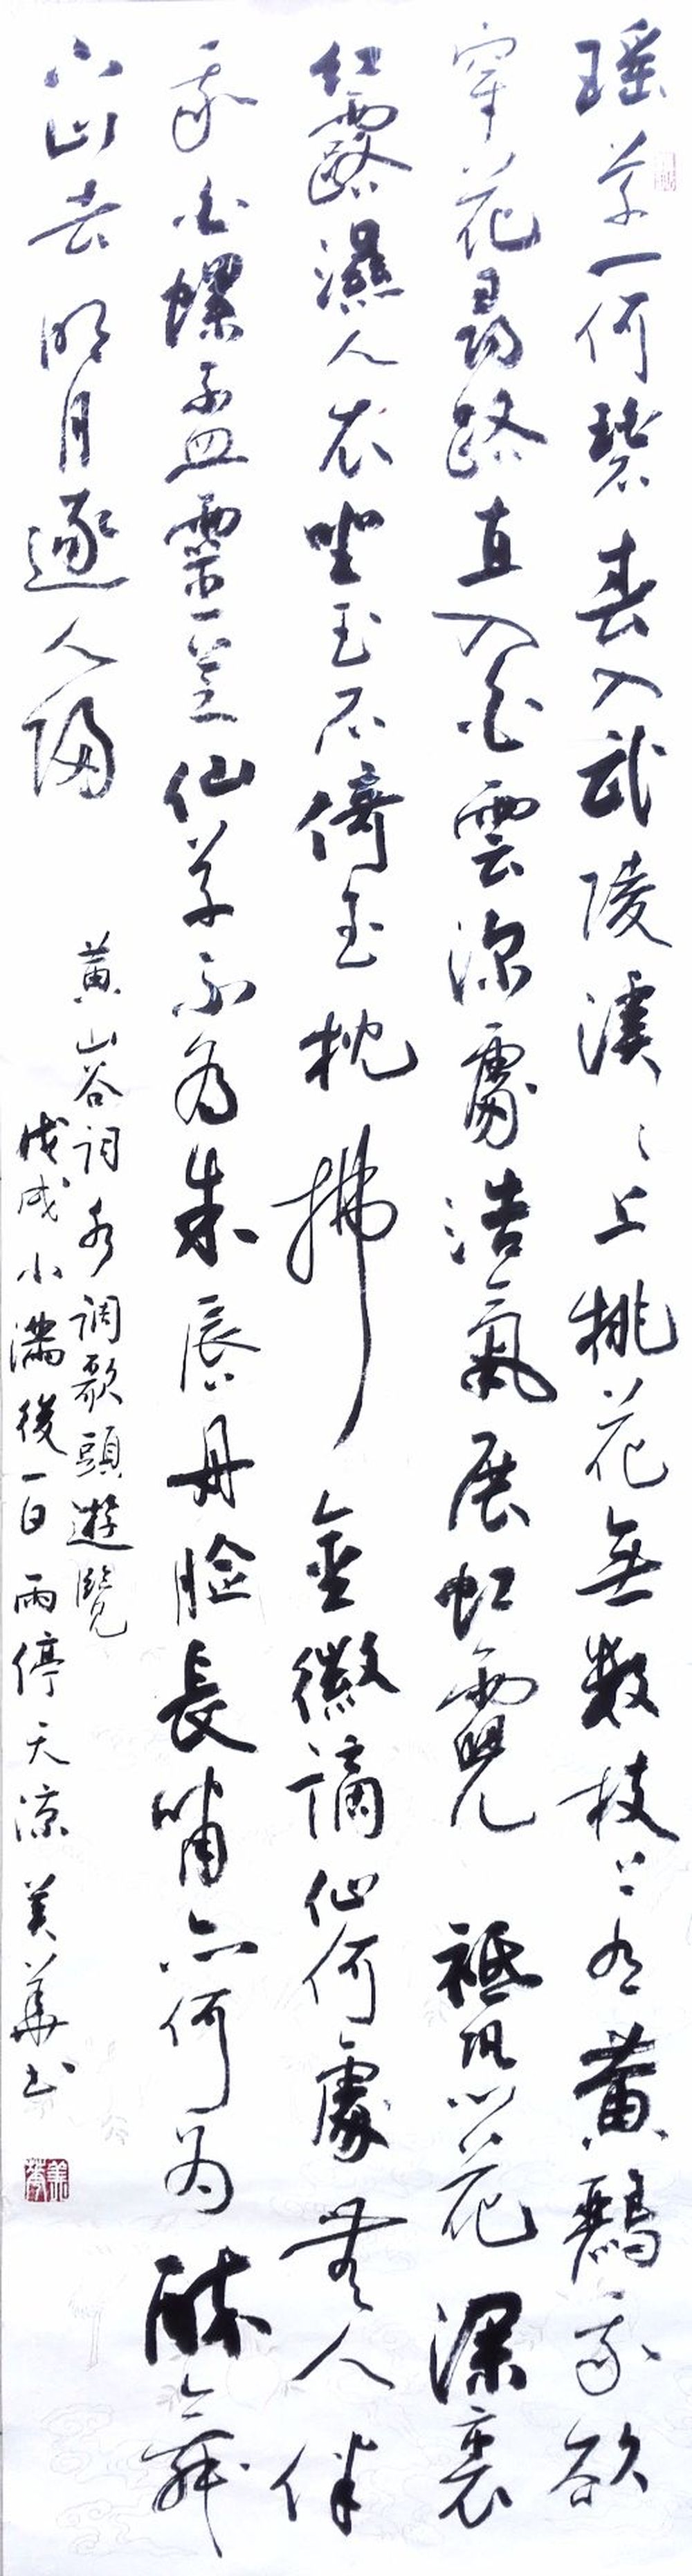 瑶草一何碧春入武陵溪々上桃花無数枝上有黄鸝我欲
穿花尋路直入白雲深處浩氣展虹霓祗恐花深裏
紅露濕人衣坐玉石倚玉枕拂金徽謫仙何處無人伴
我白螺盃靈芝仙草不為朱唇丹脸長嘯亦何为醉舞
下山去明月逐人歸
黄山谷词水调歌頭遊覽
戊戌小滿後一日雨停天凉美華书
美華